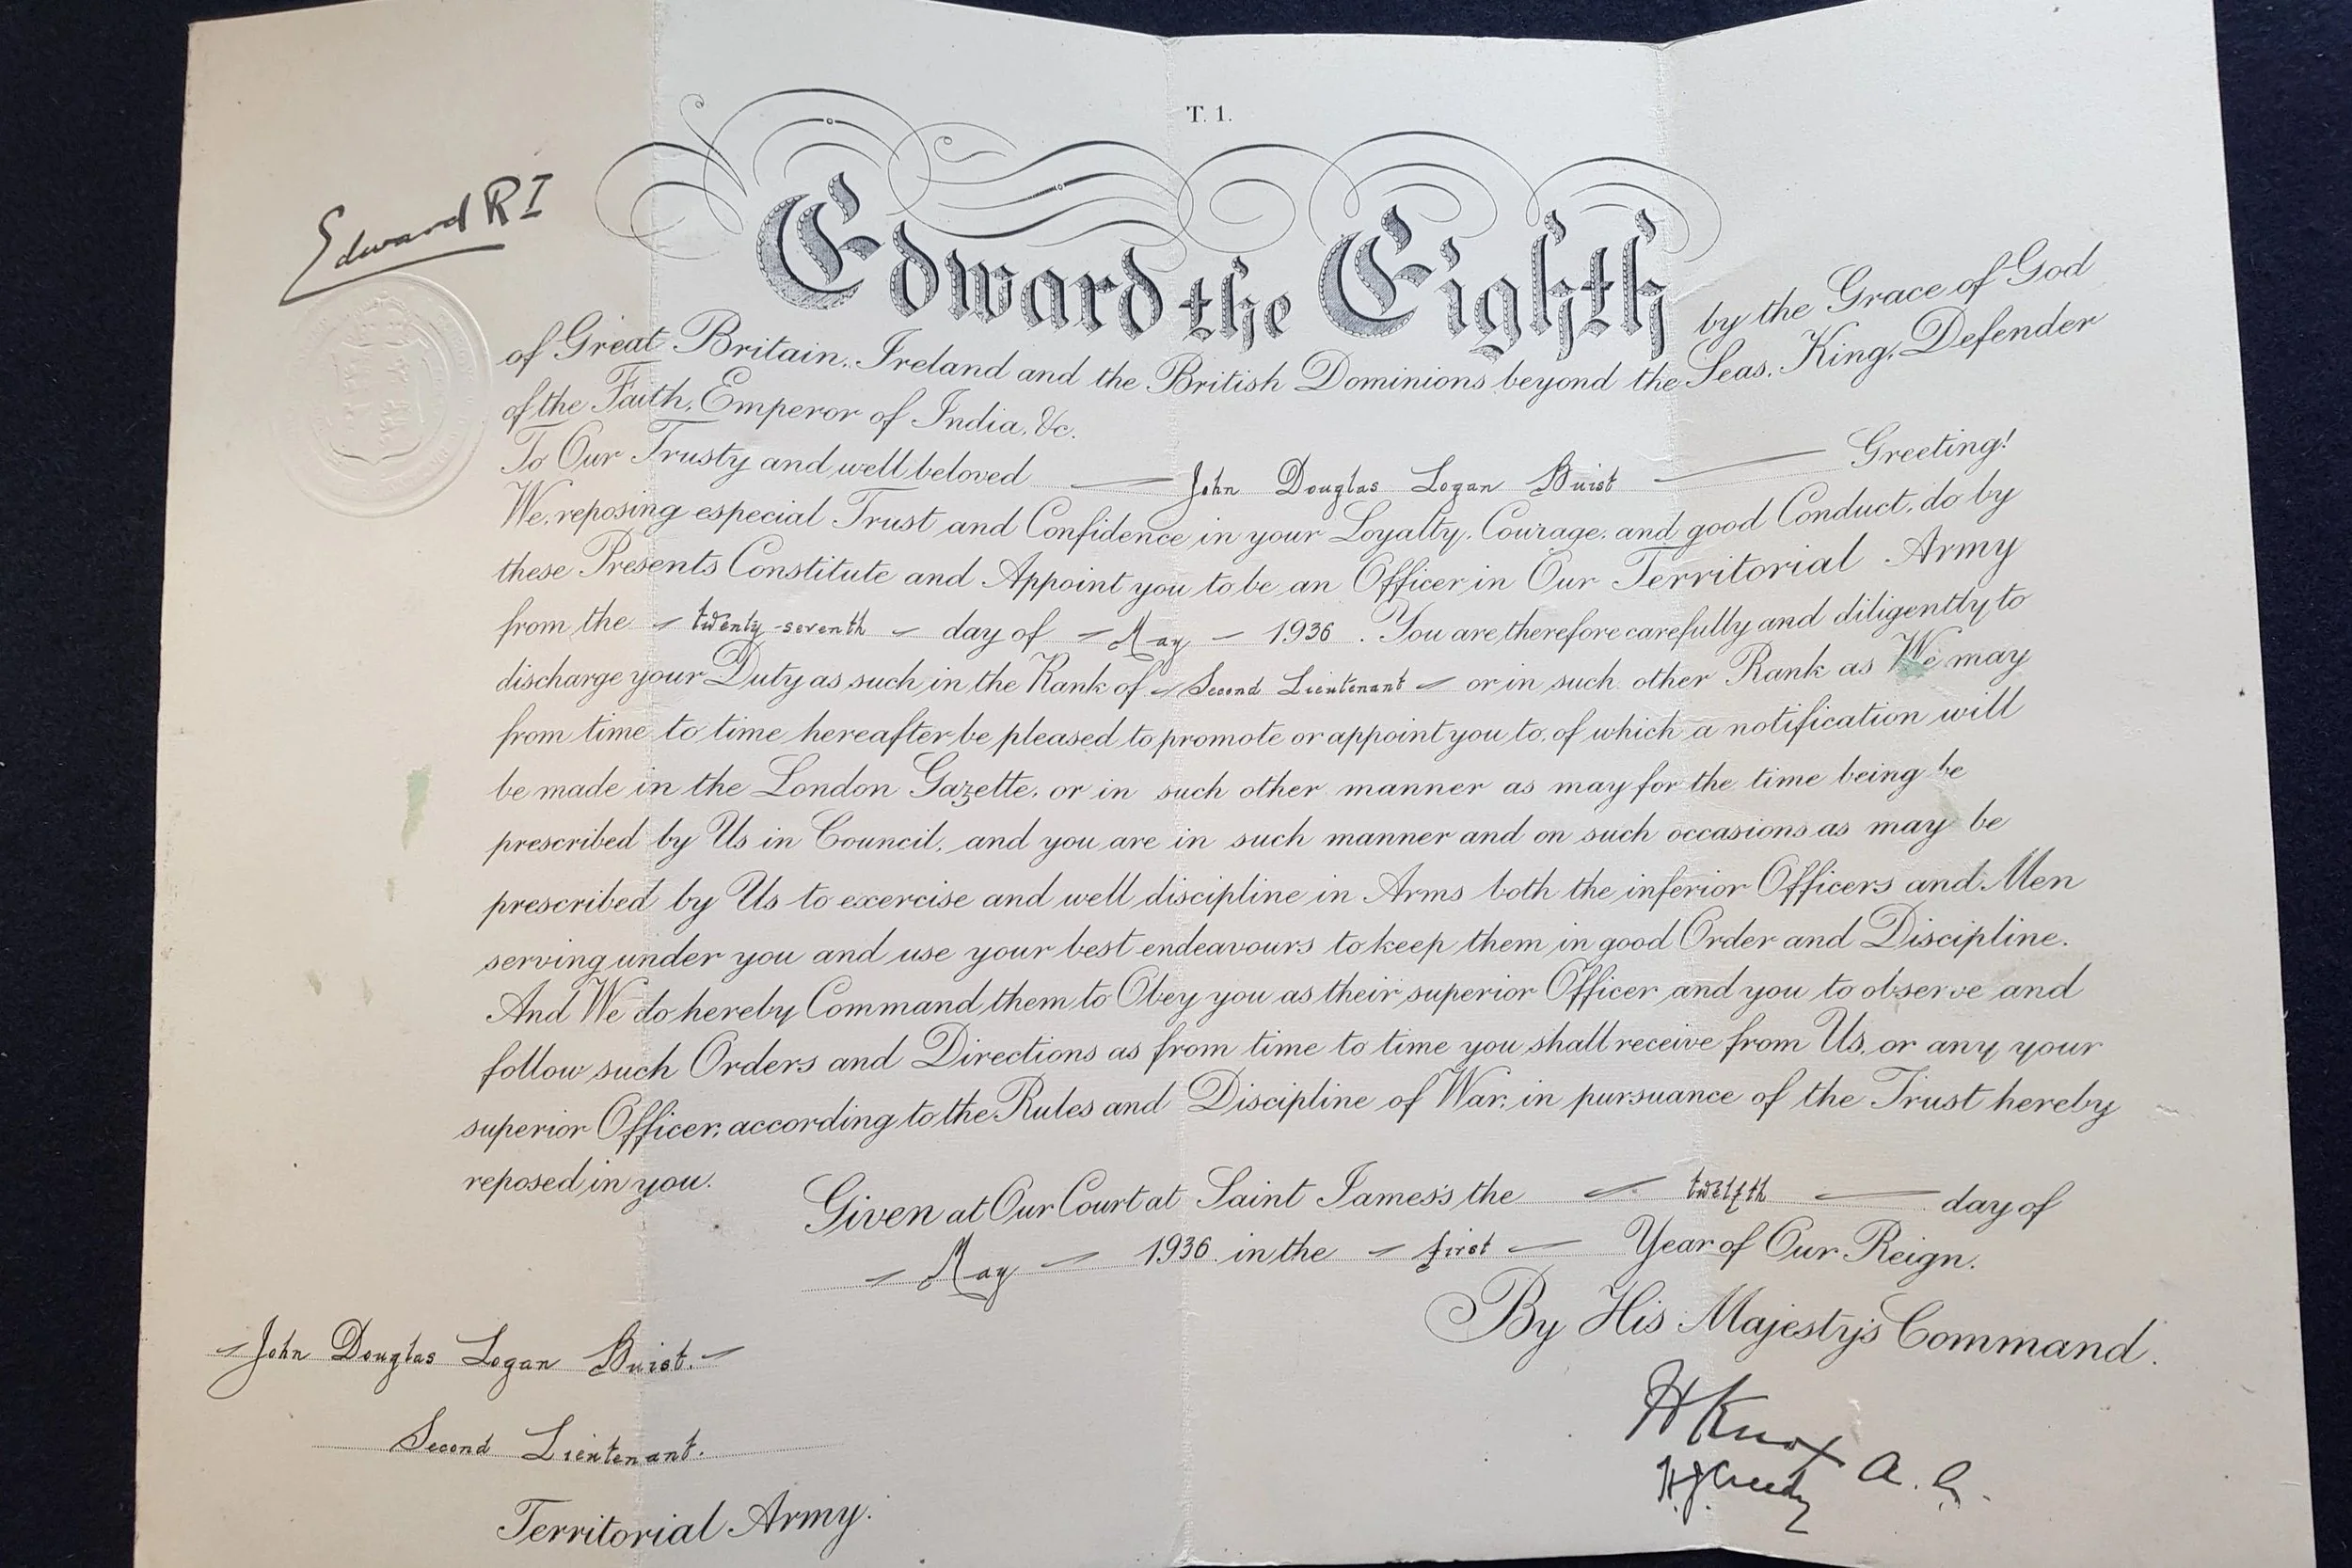 T. 1.
Edward R I
Edward the Eighth by the Grace of God
of Great Britain, Ireland and the British Dominions beyond the Seas, King, Defender
of the Faith, Emperor of India, &c.
To Our Trusty and well beloved John Douglas Logan Buist Greeting!
We, reposing especial Trust and Confidence in your Loyalty, Courage, and good Conduct, do by
these Presents Constitute and Appoint you to be an Officer in Our Territorial Army
from the twenty-seventh day of May 1936. You are therefore carefully and diligently to
discharge your Duty as such in the Rank of Second Lieutenant or in such other Rank as We may
from time to time hereafter be pleased to promote or appoint you to, of which a notification will
be made in the London Gazette, or in such other manner as may for the time being be
prescribed by Us in Council, and you are in such manner and on such occasions as may be
prescribed by Us to exercise and well discipline in Arms both the inferior Officers and Men
serving under you and use your best endeavours to keep them in good Order and Discipline.
And We do hereby Command them to Obey you as their superior Officer and you to observe and
follow such Orders and Directions as from time to time you shall receive from Us, or any your
superior Officer, according to the Rules and Discipline of War, in pursuance of the Trust hereby
reposed in you.
Given at Our Court at Saint James's the twelfth day of
May 1936 in the first Year of Our Reign.
By His Majesty's Command.
John Douglas Logan Buist.
Second Lieutenant.
Territorial Army.
H Knox A. G.
H J Creedy